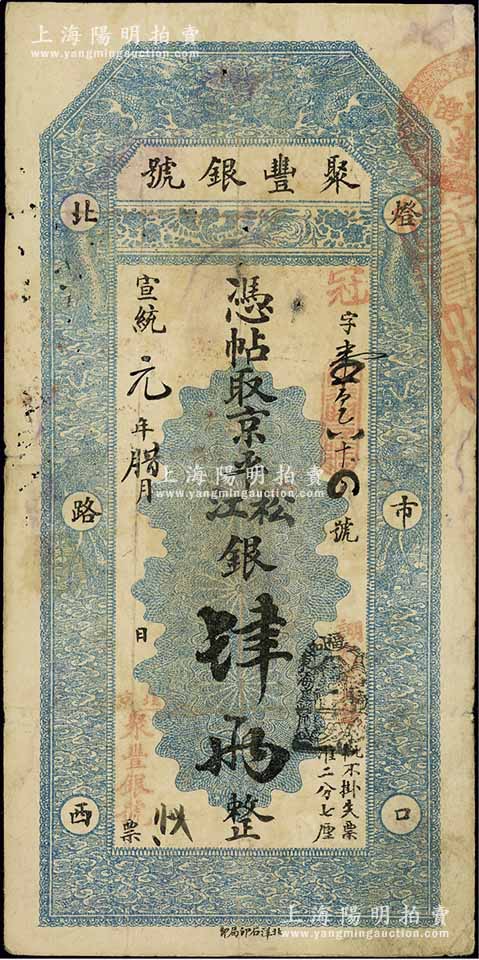 上海陽明拍賣
www.yangmingauction.com
聚豐銀號
燈市口
北路西
冠
字壹百六十四號
憑帖取京平松江銀肆兩整
宣統元年腊月 日
票
概不掛失票
二分七厘
聚豐銀號
上海陽明拍賣
www.yangmingauction.com
北洋石印局印
上海陽明拍賣
www.yangmingauction.com